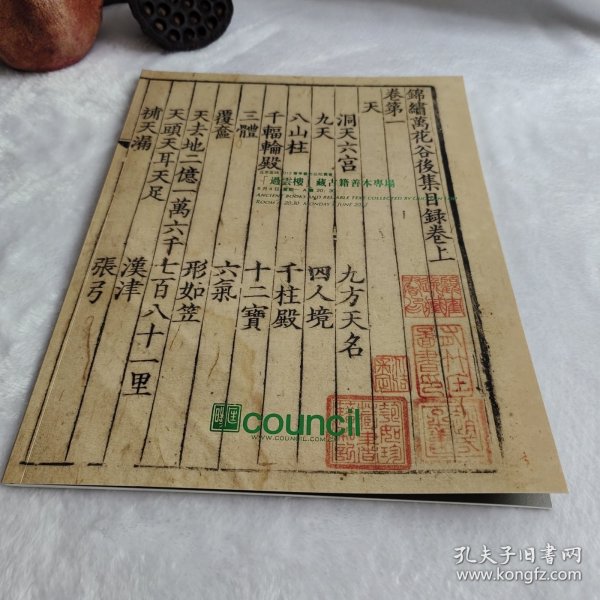 錦繡萬花谷後集目錄卷上
卷第一
天
洞天六宮 九方天名
九天 四人境
八山柱 千柱殿
千輻輪殿 十二寶
三體 六氣
覆奩 形如笠
天去地二億一萬六千七百八十一里
天頭天耳天足 漢津
補天漏 張弓
「過雲樓」藏古籍善本專場
council
WWW.COUNCIL.COM.CN
孔夫子旧书网
www.kongfz.com